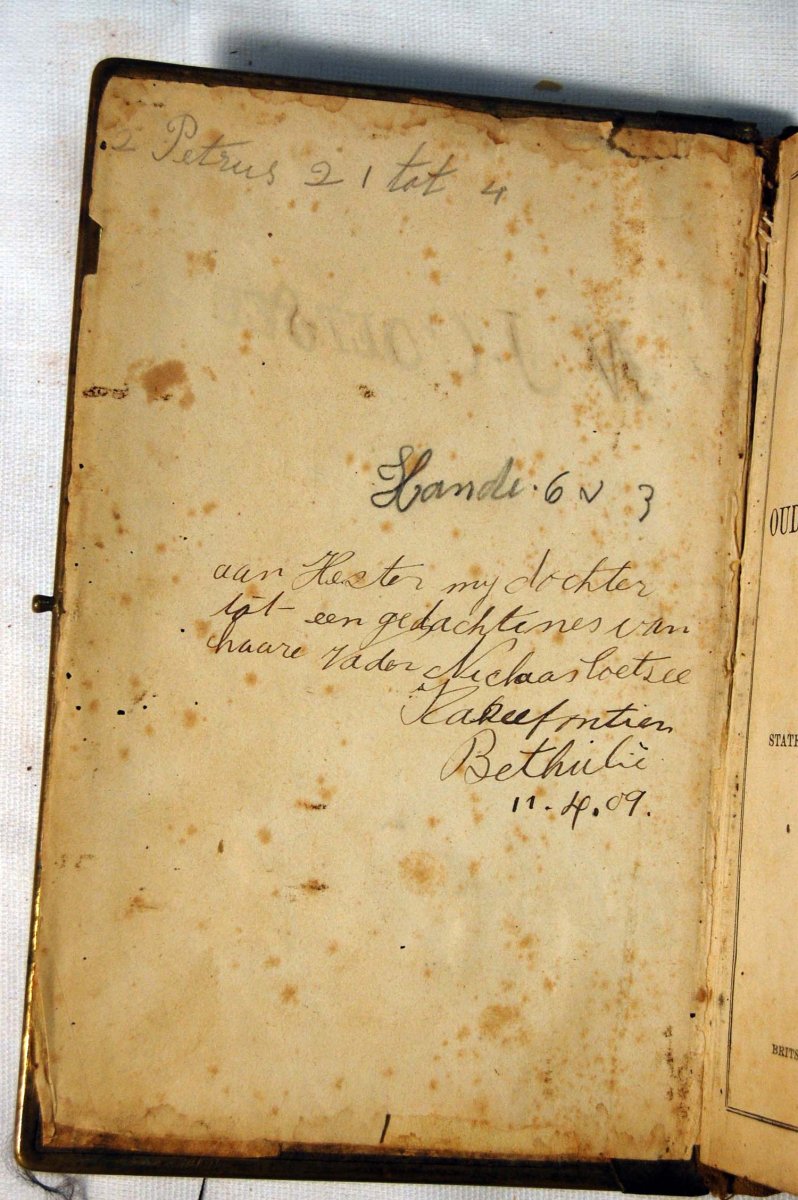 2 Petrus 2 1 tot 4
Hande. 6 v 3
aan Hester my dochter
tot een gedachtenes van
haare vader Niclaas Coetsee
Bethulie
11.4.09.
1
OUD
STAT
BRITS